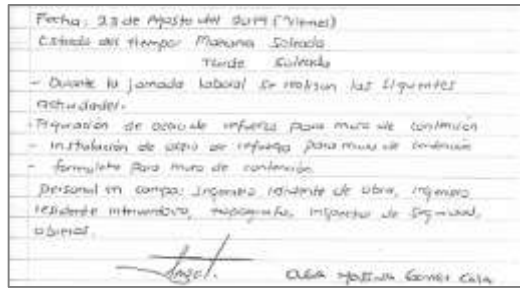 Fecha: 23 de Agosto del 2019 (Viernes)
Estado del tiempo: Mañana Soleada
Tarde Soleada
- Durante la jornada laboral se realizan las siguientes
actividades.
- Figuración de acero de refuerzo para muro de contención
- instalación de acero de refuerzo para muro de contención
- formaleta para muro de contención.
personal en campo: ingeniero residente de obra, ingeniero
residente interventora, topografo, inspector de seguridad,
obreros.
Angel.